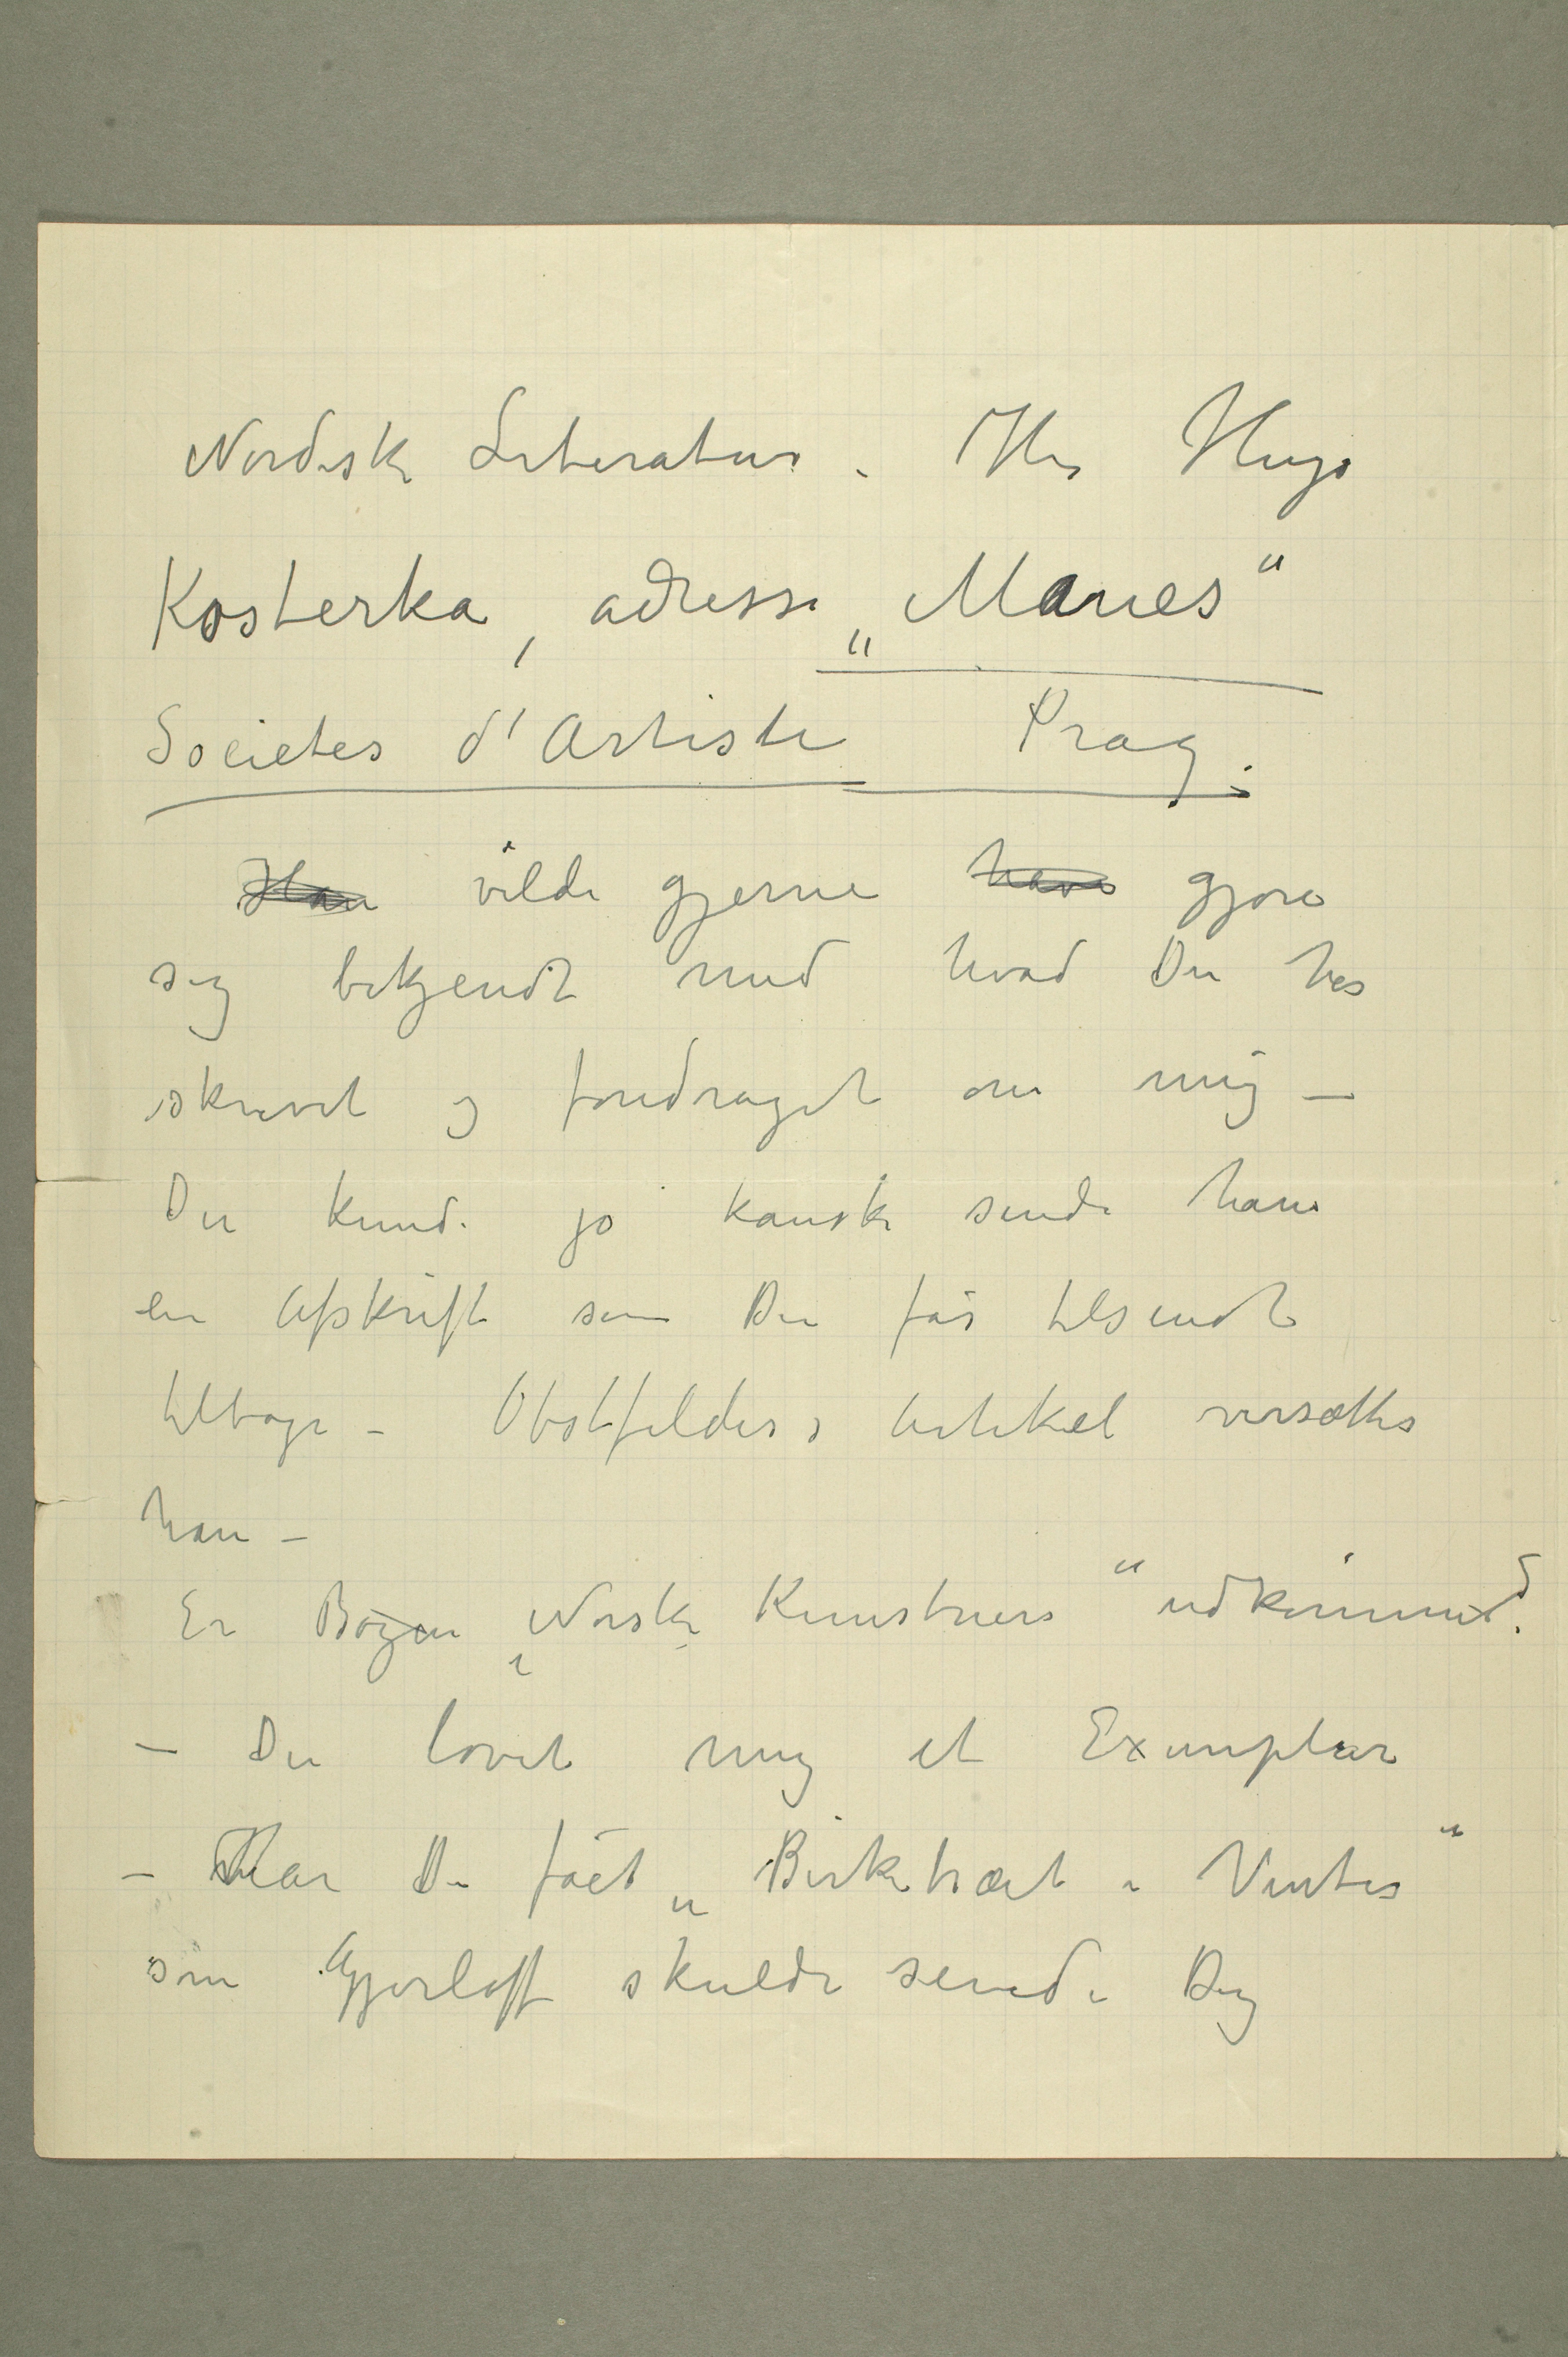 Nordisk Literatur. Hr Hugo
Kosterka, adresse „Manes“
Societes d'Artiste Prag.
Han vilde gjerne have gjøre
sig bekjendt med hvad Du har
skrevet og foredraget om mig –
Du kunde jo kanske sende ham
en Afskrift som Du får tilsendt
tilbage – Obstfelders Artikel oversættes
han –
Er Bogen „Norske Kunstnere“ udkommet?
– Du lovet mig et Exemplar
– Har Du fået „Birketræet i Vinter“
som Gjerløff skulde sende Dig